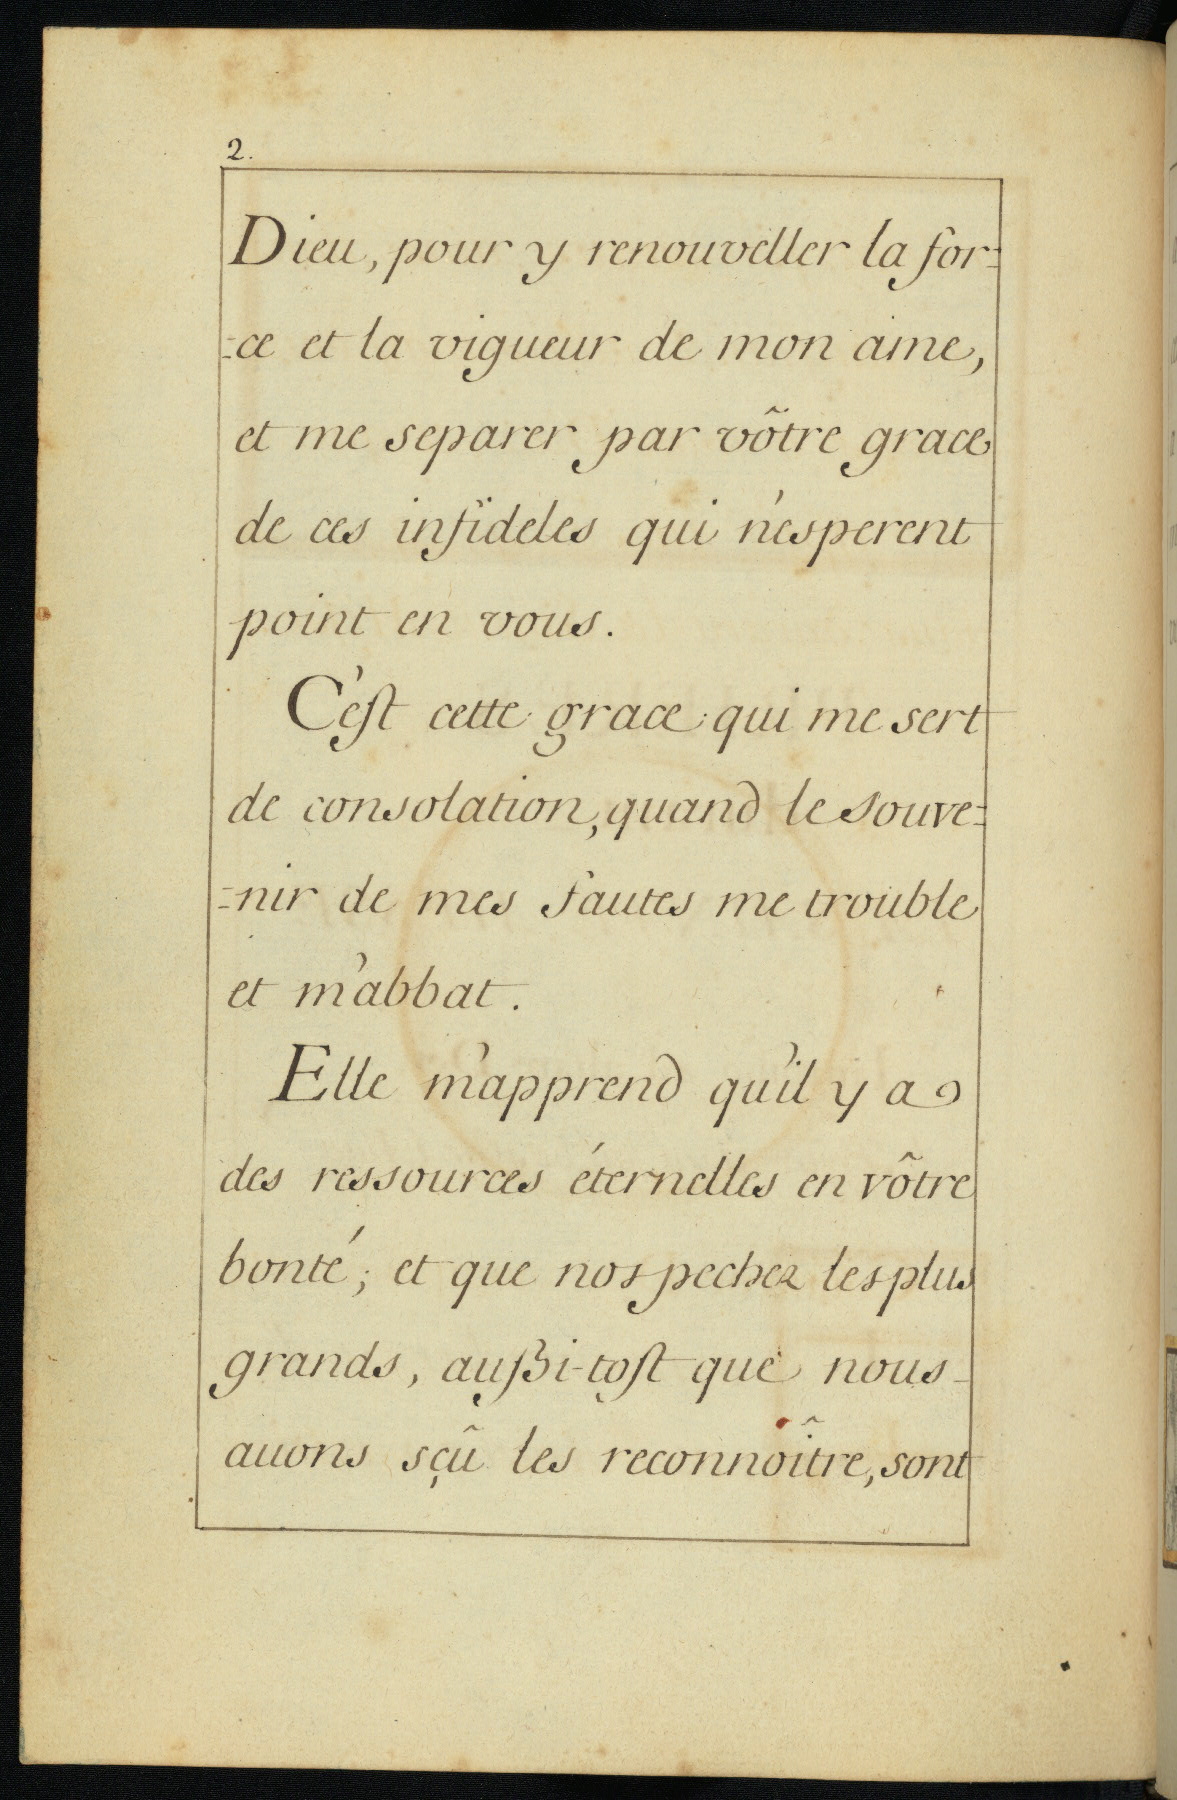 2.
Dieu, pour y renouveller la for=
=ce et la vigueur de mon ame,
et me separer par vôtre grace
de ces infideles qui n'esperent
point en vous.
C'est cette grace qui me sert
de consolation, quand le souve=
=nir de mes fautes me trouble
et m'abbat.
Elle m'apprend qu'il y a
des ressources éternelles en vôtre
bonté; et que nos pechez les plus
grands, außi-tost que nous
auons sçû les reconnoître, sont